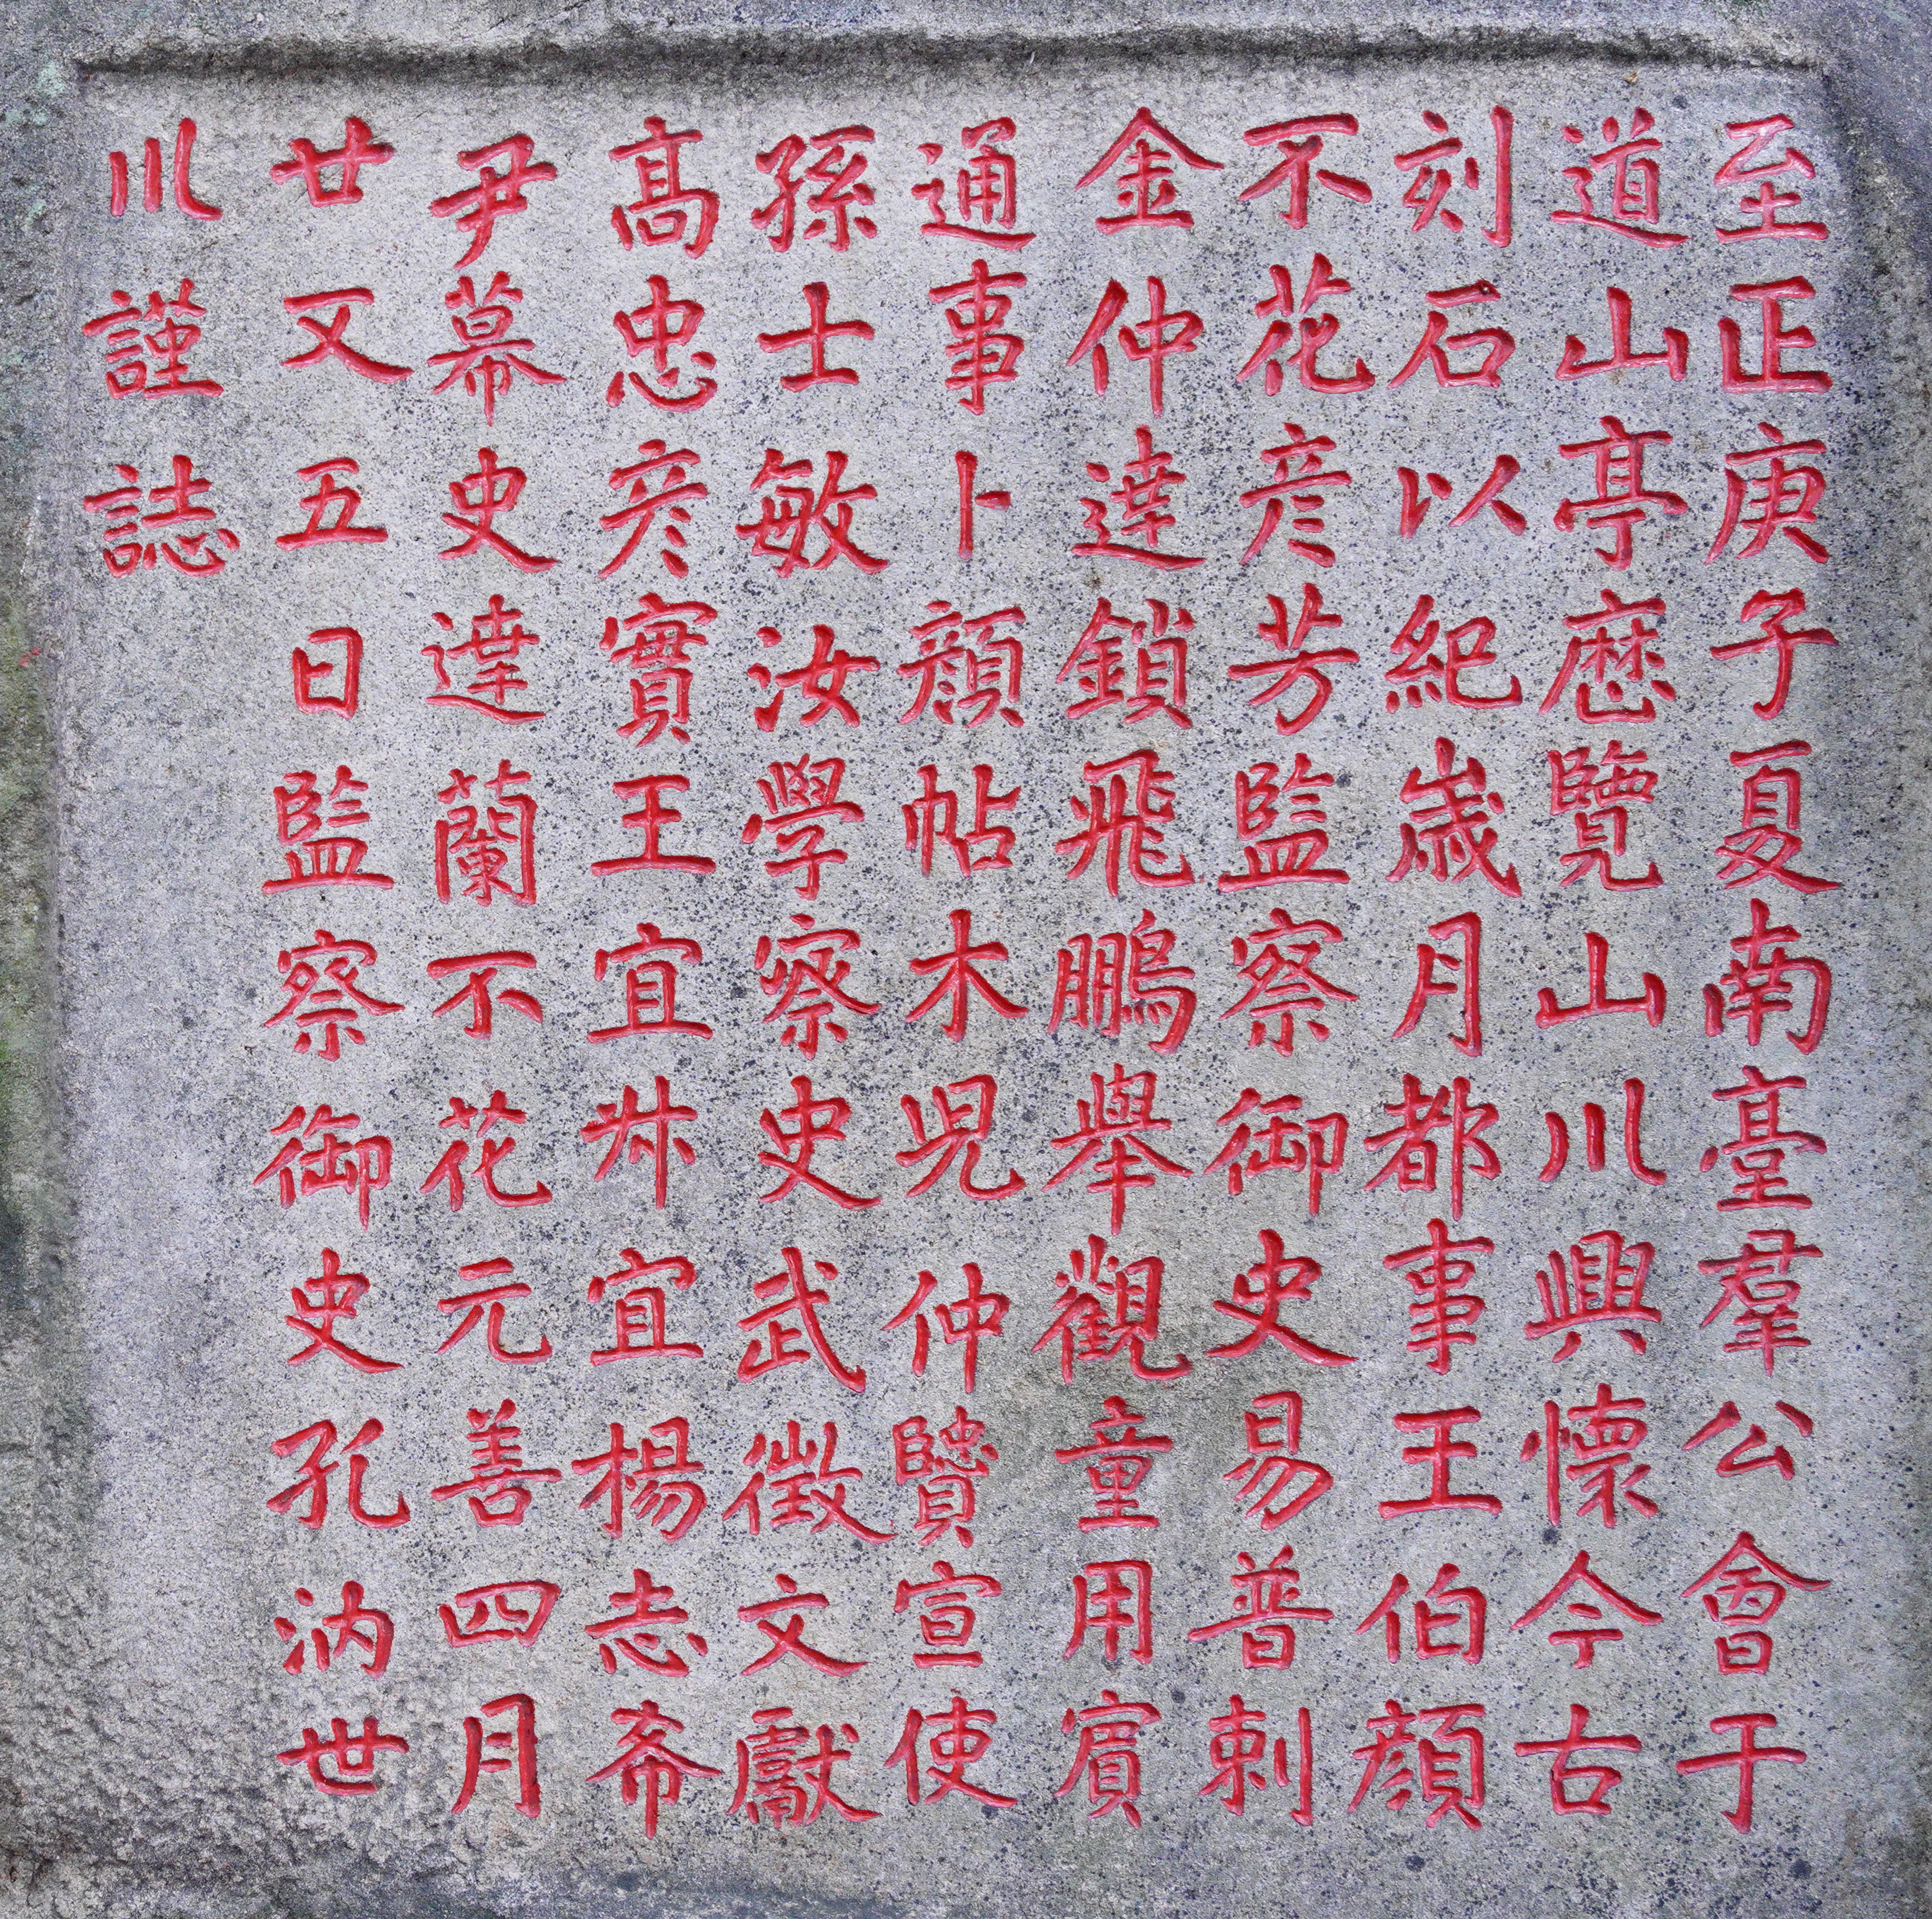 至正庚子夏南臺羣公會于
道山亭歷覽山川興懷今古
刻石以紀歲月都事王伯顏
不花彦芳監察御史易普剌
金仲達鎖飛鵬舉觀童用賓
通事卜顏帖木児仲賢宣使
孫士敏汝學察史武徵文獻
髙忠彦實王宜叔宜楊志希
尹幕史達蘭不花元善四月
廿又五日監察御史孔汭世
川謹誌